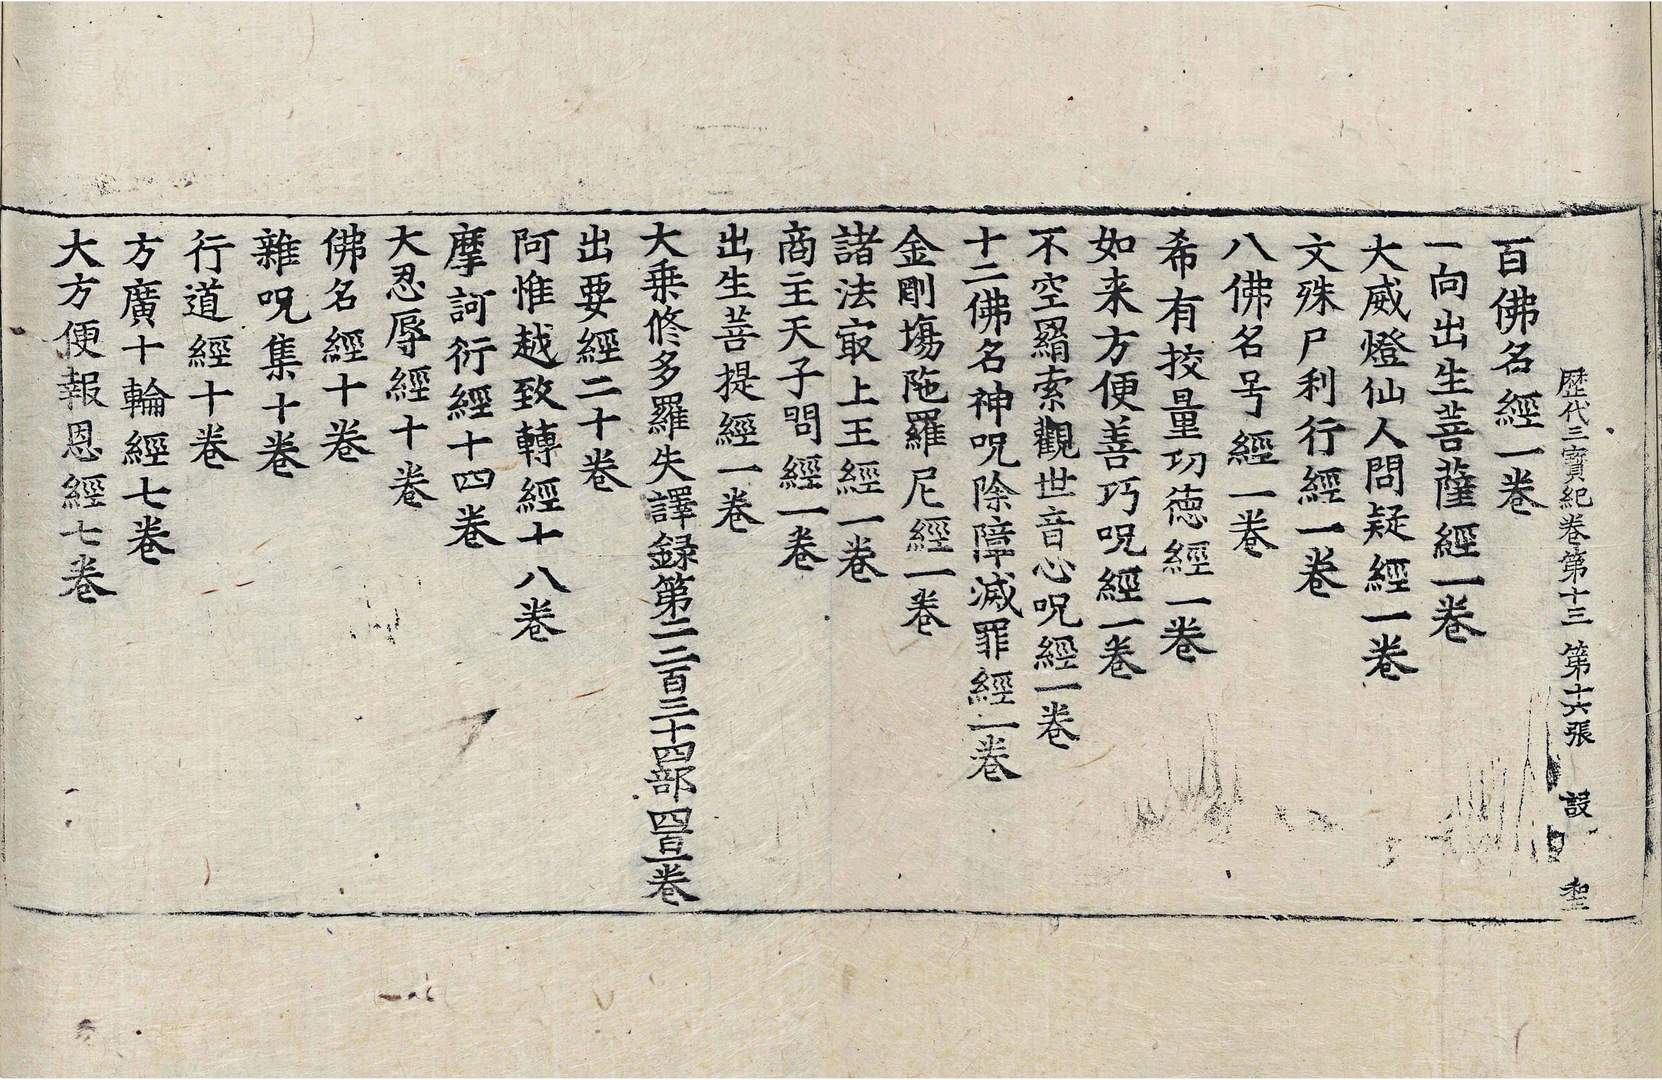 歷代三寶紀卷第十三 第十六張 設 
百佛名經一卷
一向出生菩薩經一卷
大威燈仙人問疑經一卷
文殊尸利行經一卷
八佛名号經一卷
希有挍量功徳經一卷
如来方便善巧呪經一卷
不空羂索觀世音心呪經一卷
十二佛名神呪除障滅罪經一卷
金剛塲陁羅尼經一卷
諸法㝡上王經一卷
商主天子問經一卷
出生菩提經一卷
大乗修多羅失譯録第二二百三十四部四百一卷
出要經二十卷
阿惟越致轉經十八卷
摩訶衍經十四卷
大忍辱經十卷
佛名經十卷
雜呪集十卷
行道經十卷
方廣十輪經七卷
大方便報恩經七卷